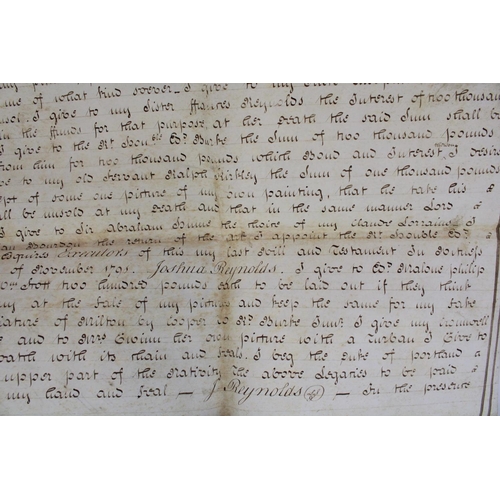 of what kind soever - I give to my
me of what kind soever I give to my Sister ffrances Reynolds the Interest of two thousand
I give to my the funds for that purpose, at her death the said Sum shall be
I give to the Rt Honble Edd Burke the Sum of two thousand pounds
from him for two thousand pounds which Bond and Interest I desire
to my old Servant Ralph Kirkley the Sum of one thousand pounds
ept of some one picture of my own painting, that he take his
ll be unsold at my death and that in the same manner Lord
I give to Sir Abraham Hume the choice of my Claude Lorraines I
the return of the I appoint the Rt Honble Edd
Esquires Executors of this my last Will and Testament In Witness
of November 1791. Joshua Reynolds. I give to Edd Malone philip
Scott two hundred pounds each to be laid out if they think
my at the sale of my pictures and keep the same for my sake
iature of Milton by Cooper to Mr Burke Junr I give my Cromwell
and to Mrs Gwinn her own picture with a Turban I Give to
with its Chain and Seals, I beg the Duke of portland
upper part of the Nativity The above Legacies to be paid
my hand and seal — J Reynolds — In the presence